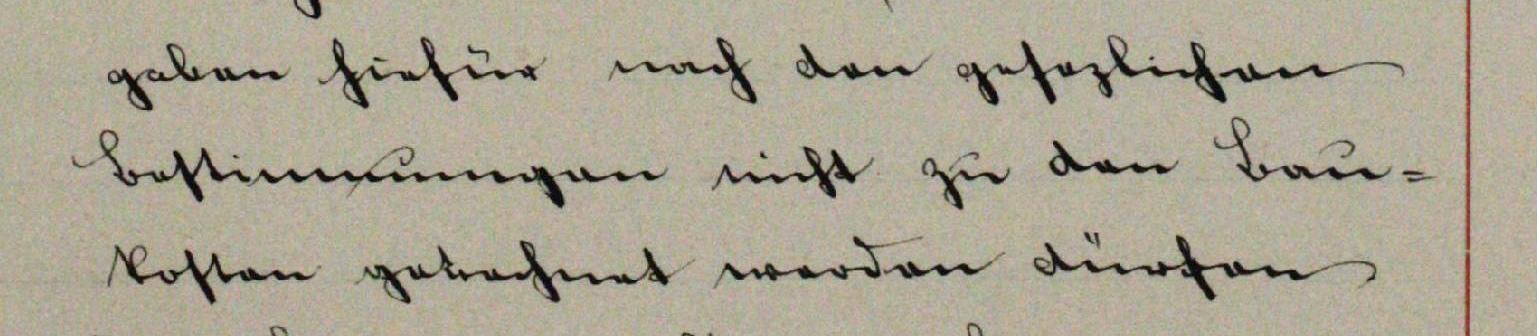 gaben hiefür nach den gesezlichen
Bestimmungen nicht zu den Bau-
kosten gerechnet werden dürfen